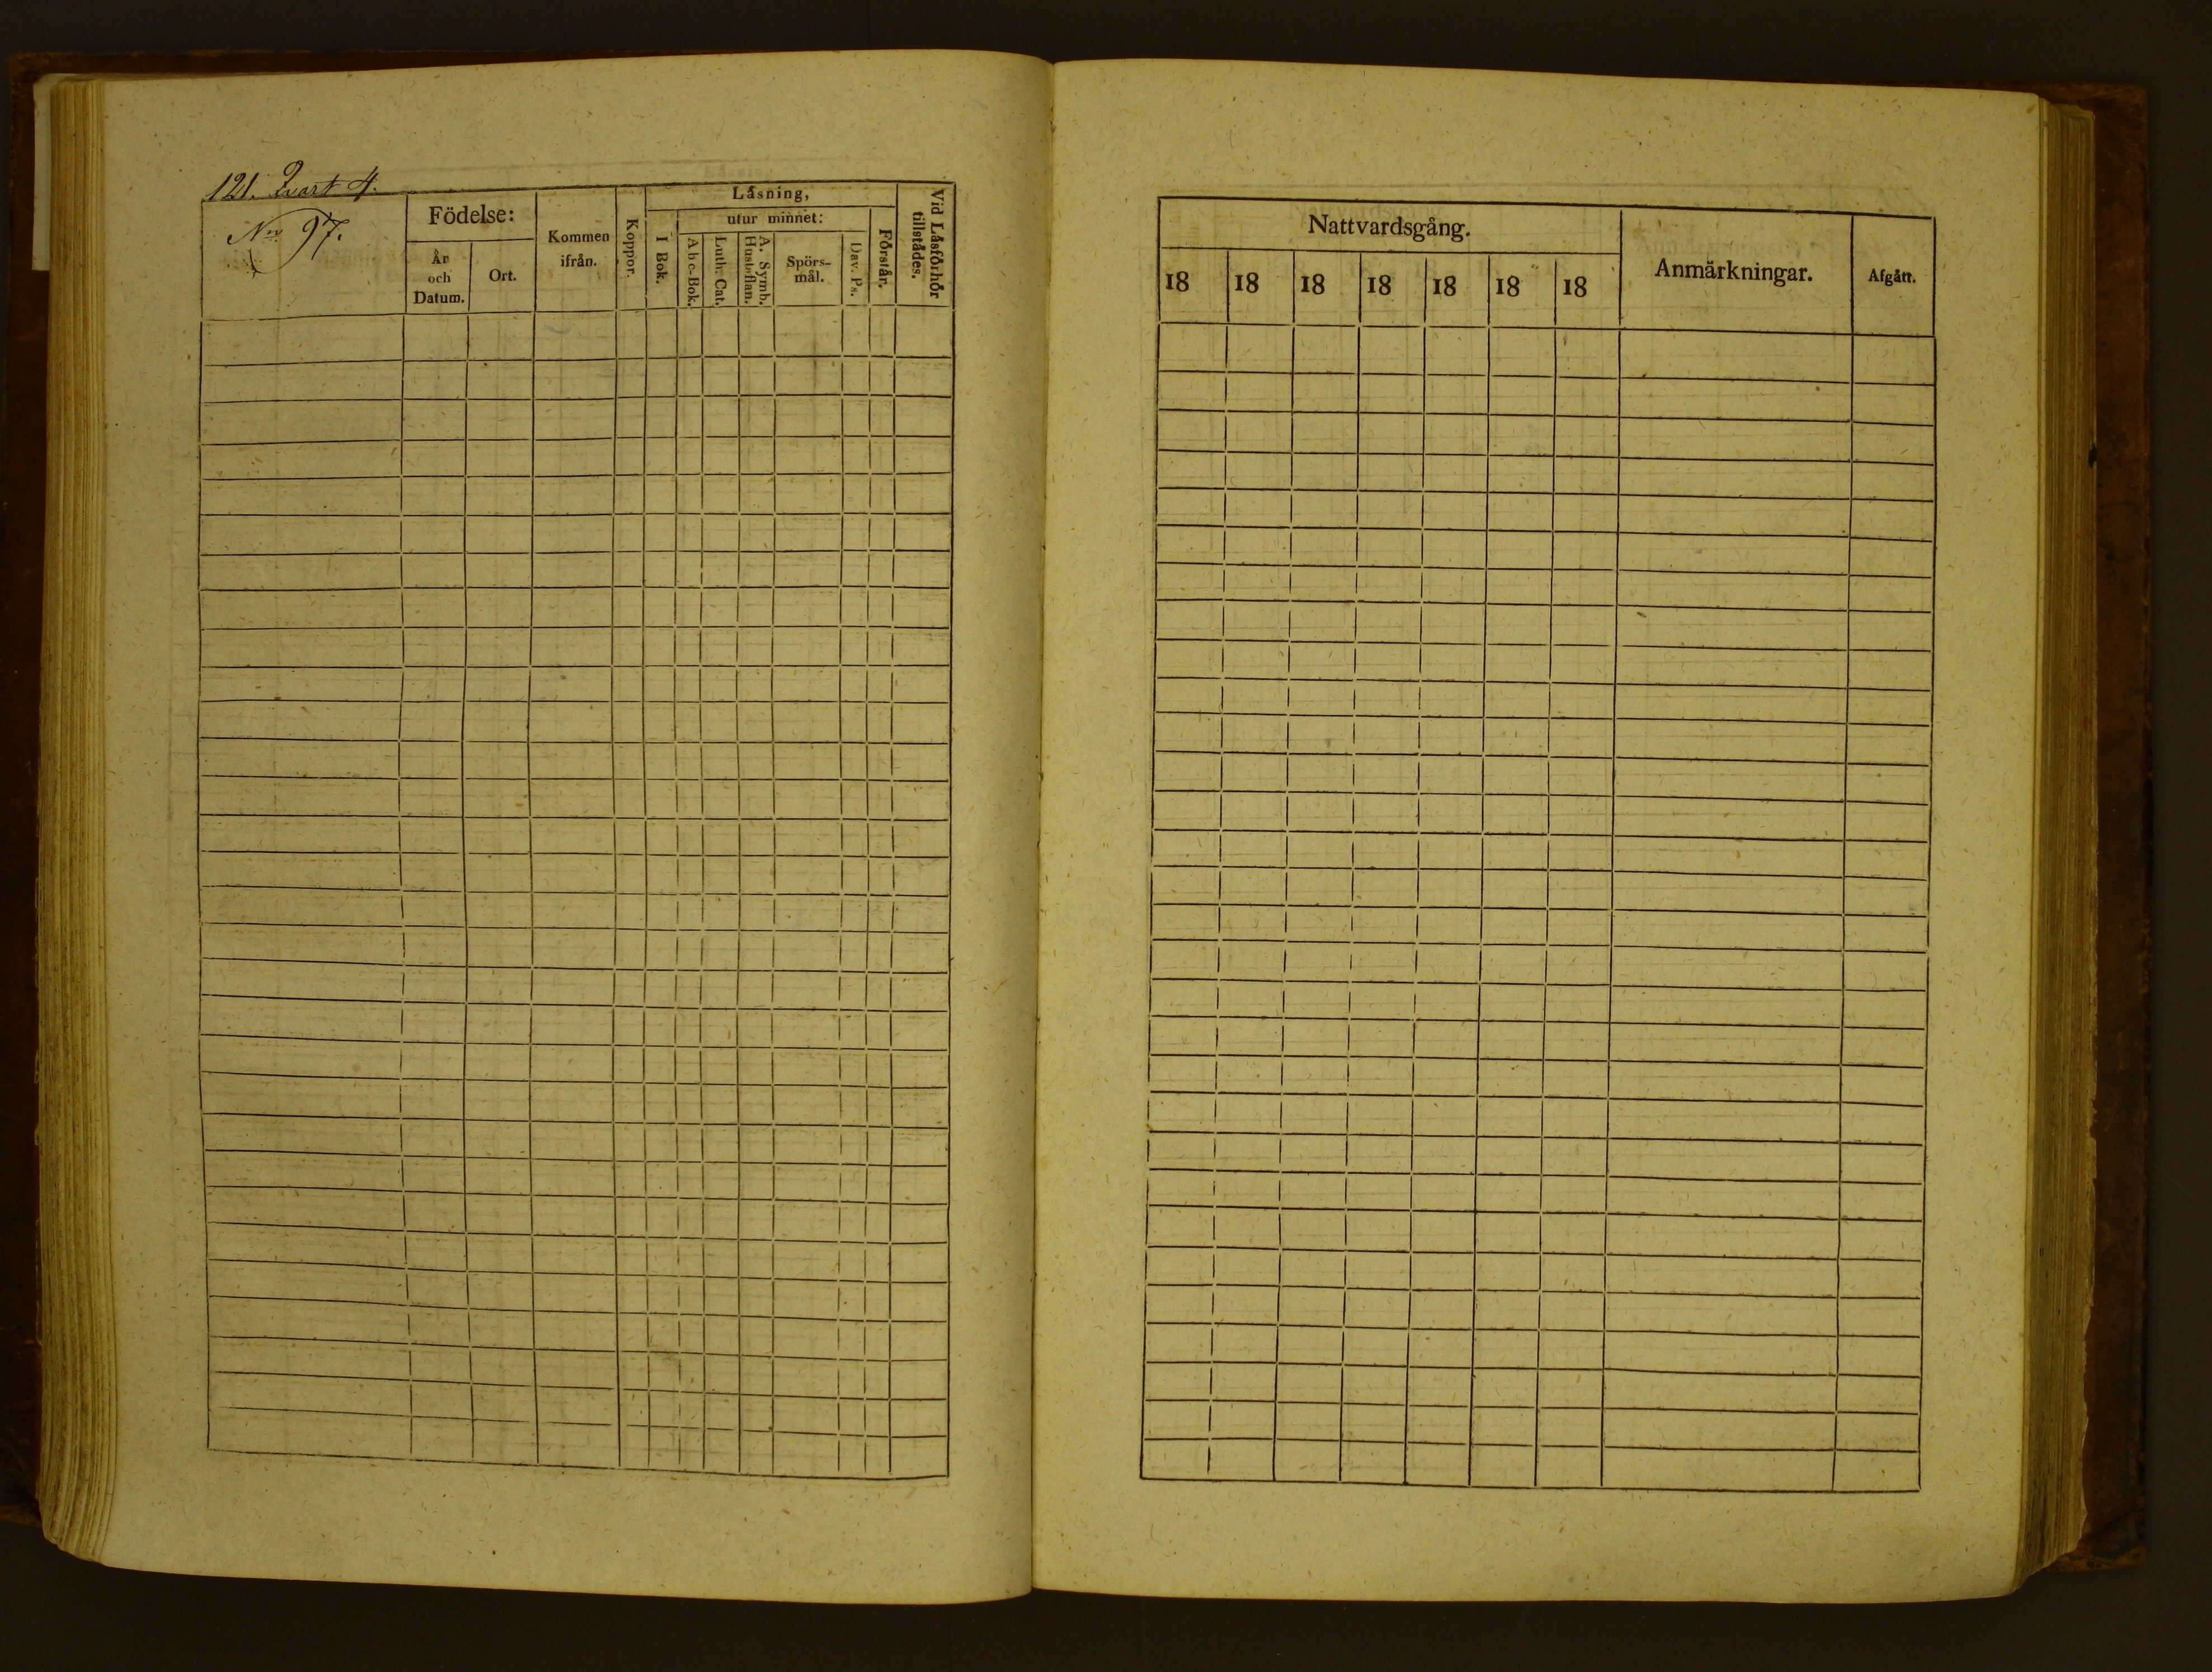 121. Qvart 4.
No 97.
Födelse:
År
och
Datum.
Ort.
Kommen
ifrån.
Koppor.
Låsning,
I Bok.
utur minnet:
A b c-Bok.
Luth. Cat.
A. Symb.
Hust-flan.
Spörs-
mål.
Dav. Ps.
Förstår.
Vid Låsförhör
tillstådes.
Nattvardsgång.
18 18 18 18 18 18 18
Anmärkningar.
Afgått.